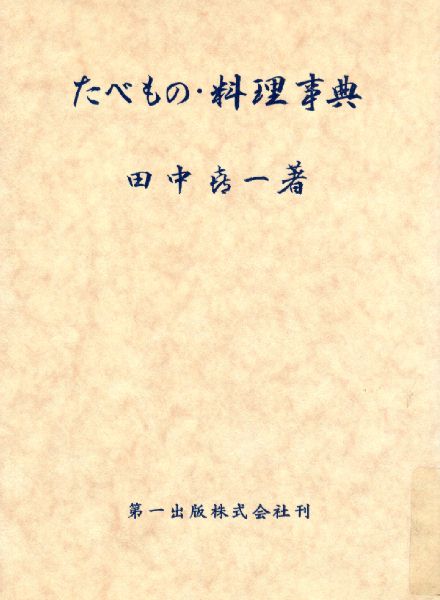 たべもの・料理事典
田中喜一著
第一出版株式会社刊